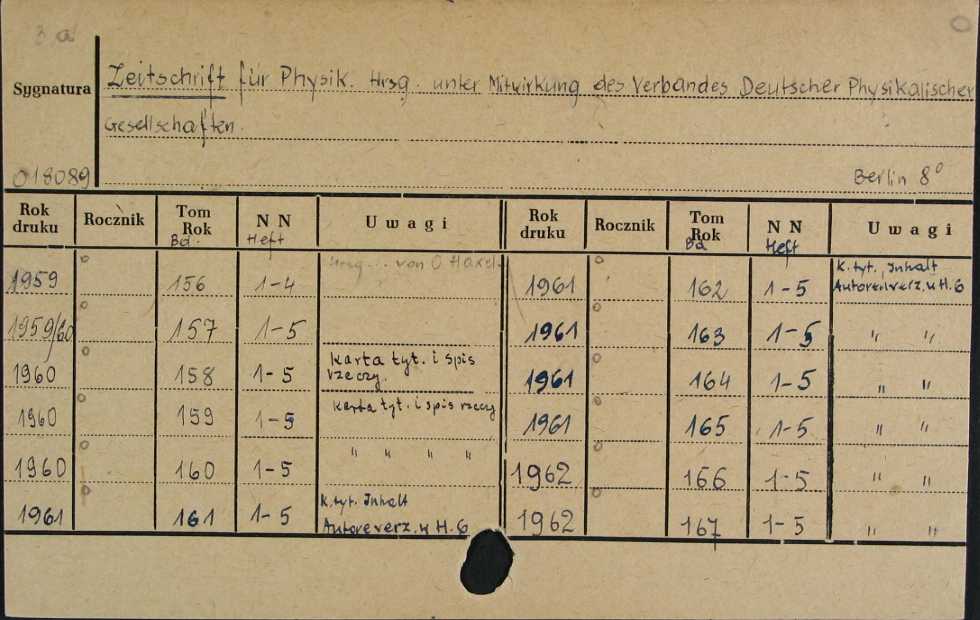 3 a
Sygnatura
Zeitschrift für Physik. Hrsg. unter Mitwirkung des Verbandes Deutscher Physikalischer
Gesellschaften.
018089
Berlin 8°
Rok druku Rocznik Tom Rok Bd. NN Heft Uwagi Rok druku Rocznik Tom Rok Bd NN Heft Uwagi
1959 156 1-4 Hrsg... von O Haxel 1961 162 1-5 K.tyt., Inhalt
Autorenverz. u H. 6
1959/60 157 1-5 1961 163 1-5 " "
1960 158 1-5 karta tyt. i spis
rzeczy. 1961 164 1-5 " "
1960 159 1-5 karta tyt. i spis rzeczy 1961 165 1-5 " "
1960 160 1-5 " " " " 1962 166 1-5 " "
1961 161 1-5 K.tyt. Inhalt
Autoreverz. u H. 6 1962 167 1-5 " "